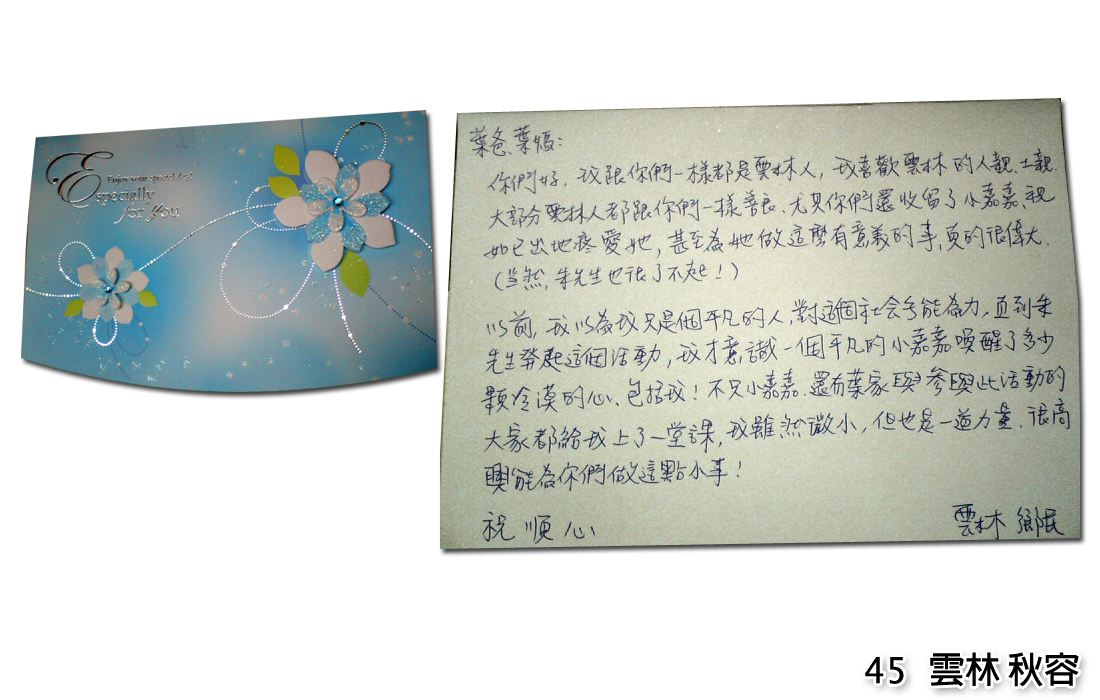 Enjoy your special day!
Especially
for You
葉爸、葉媽:
你們好, 我跟你們一樣都是雲林人, 我喜歡雲林的人親、土親.
大部分雲林人都跟你們一樣善良. 尤其你們還收留了小嘉嘉, 視
如己出地疼愛她, 甚至為她做這麼有意義的事, 真的很偉大.
(当然, 朱先生也很了不起!)
以前, 我以為我只是個平凡的人, 對這個社会無能為力, 直到朱
先生發起這個活動, 我才意識一個平凡的小嘉嘉喚醒了多少
顆冷漠的心、包括我! 不只小嘉嘉. 還有葉家與參與此活動的
大家都給我上了一堂課, 我雖然微小, 但也是一道力量. 很高
興能為你們做這點小事!
祝 順心
雲林 鄉民
45 雲林 秋容